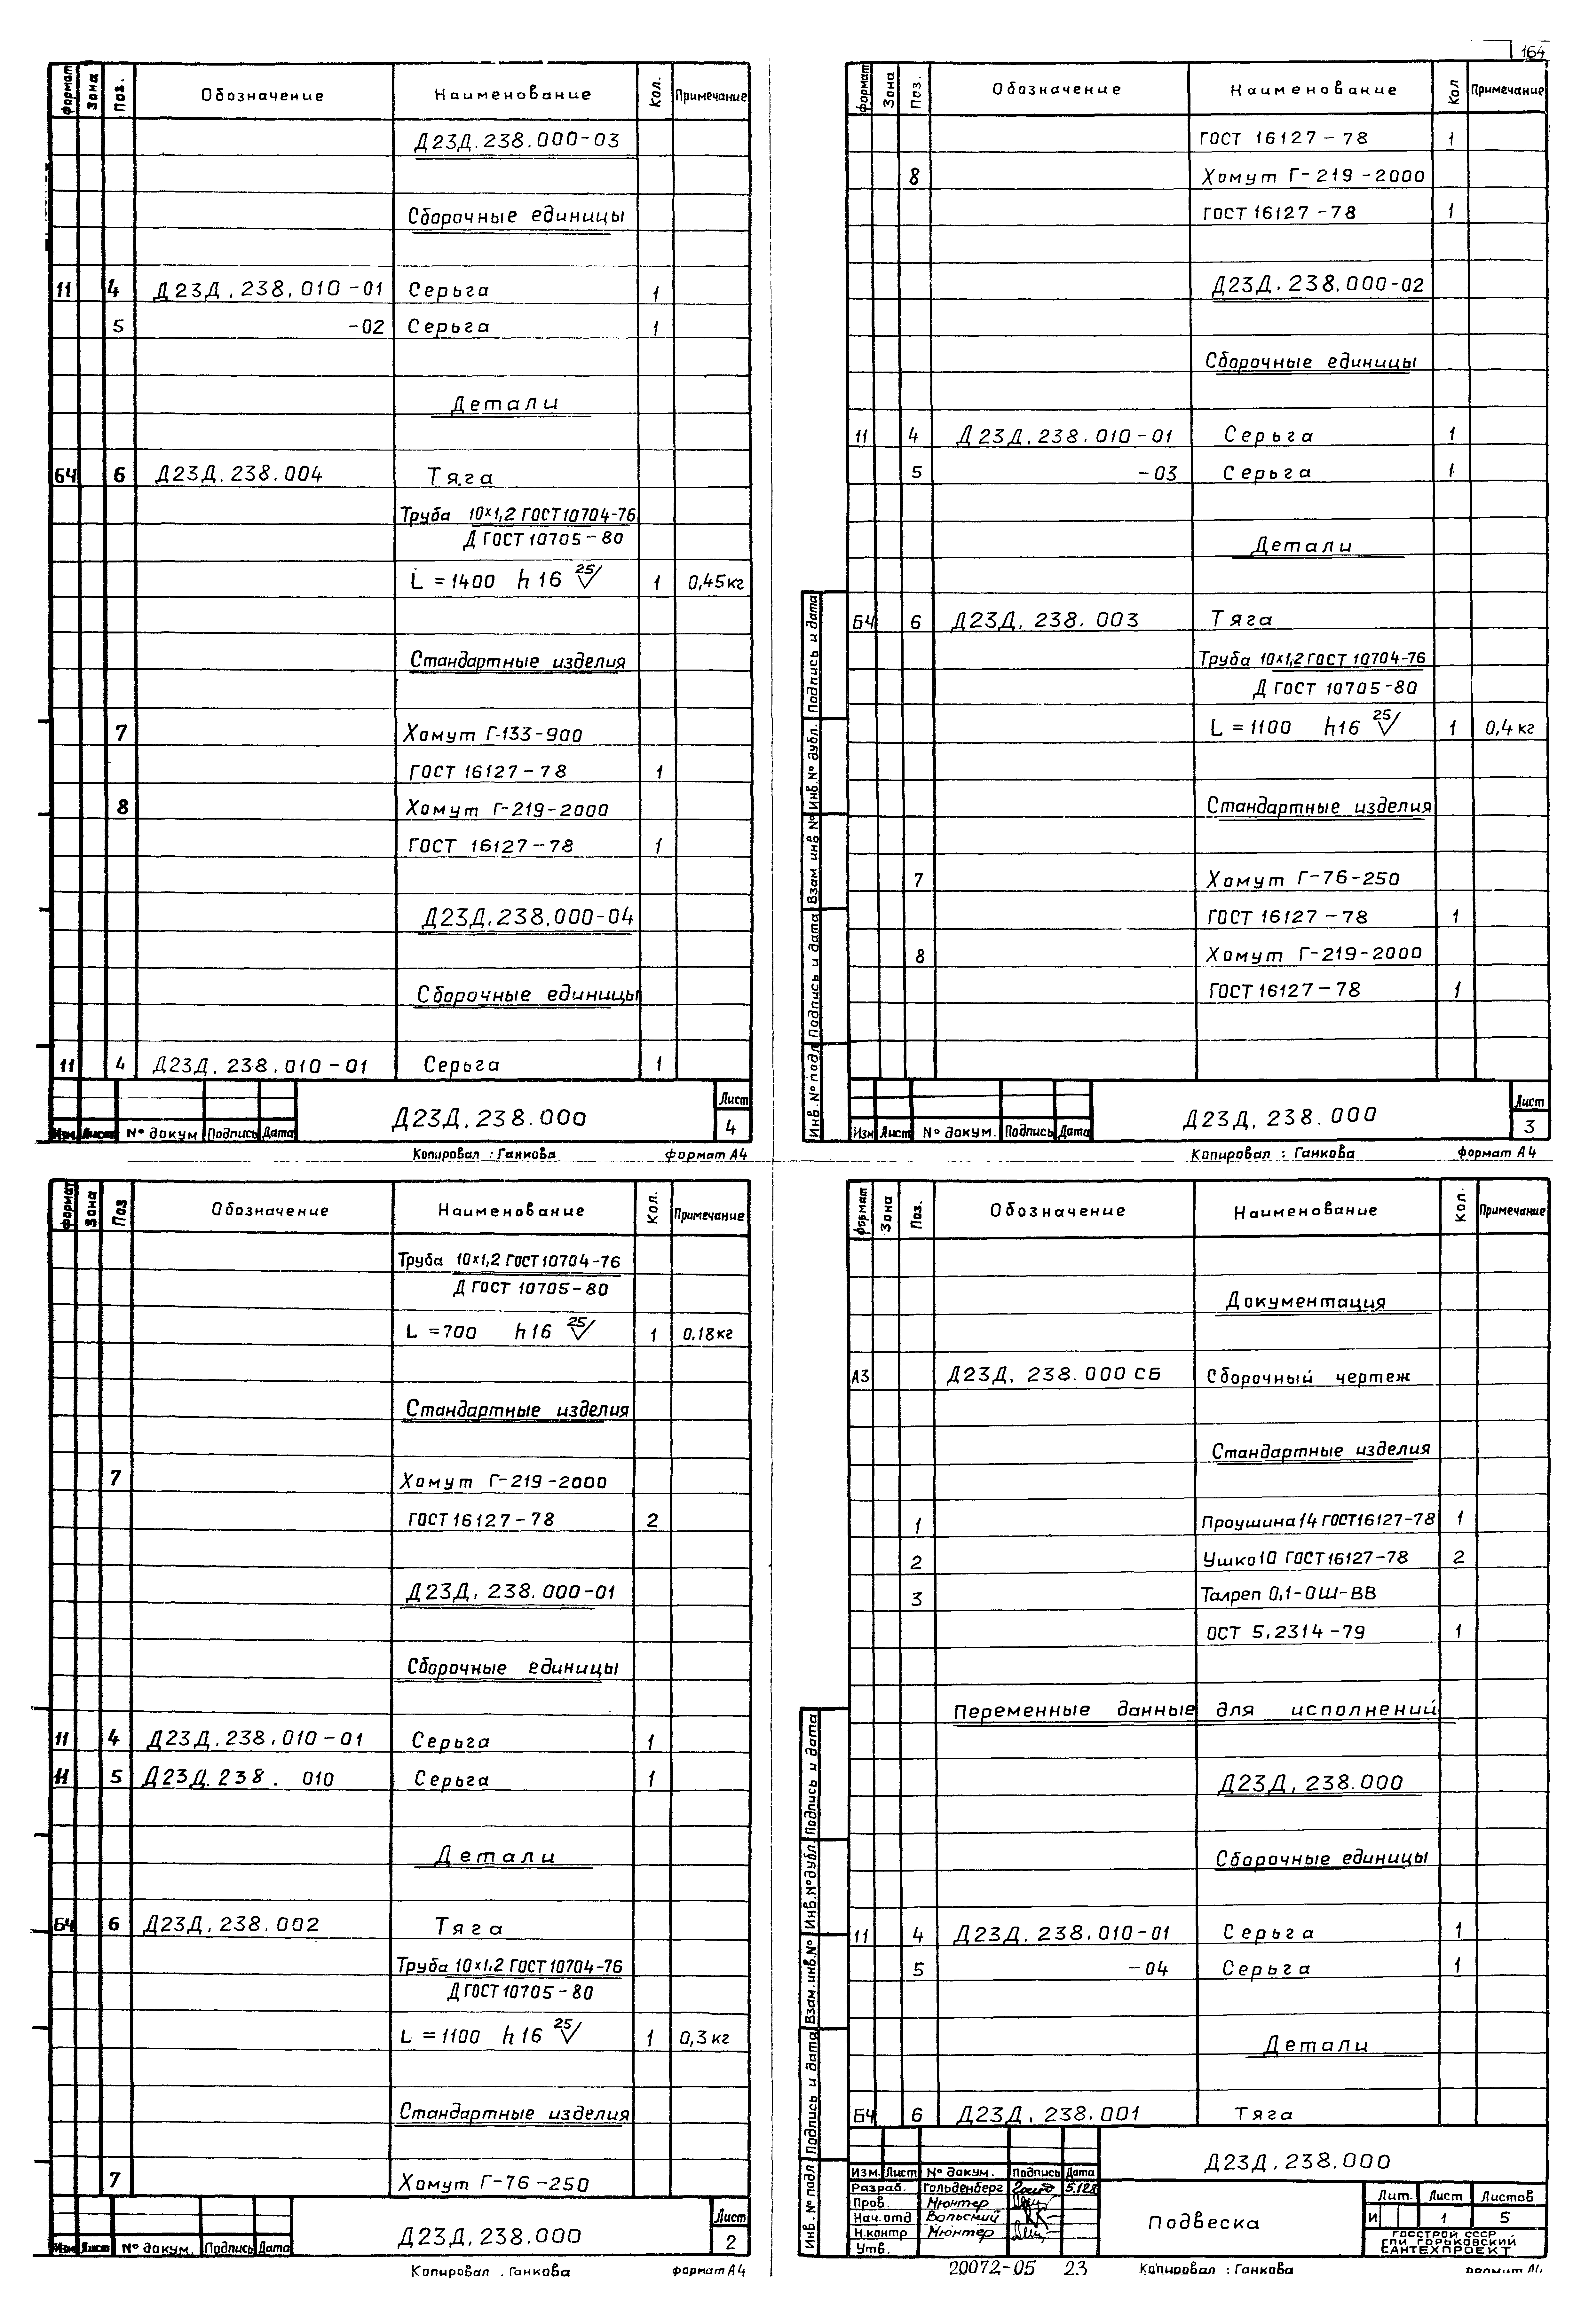 164
формат Зона Поз. Обозначение Наименование Кол. Примечание
Д23Д.238.000-03
Сборочные единицы
11 4 Д23Д.238.010-01 Серьга 1
5 -02 Серьга 1
Детали
БЧ 6 Д23Д.238.004 Тяга
Труба 10×1,2 ГОСТ 10704-76
Д ГОСТ 10705-80
L=1400 h16 25/ 1 0,45кг
Стандартные изделия
7 Хомут Г-133-900
ГОСТ 16127-78 1
8 Хомут Г-219-2000
ГОСТ 16127-78 1
Д23Д.238.000-04
Сборочные единицы
11 4 Д23Д.238.010-01 Серьга 1
Изм Лист № докум Подпись Дата Д23Д.238.000 Лист 4
Копировал : Ганкова формат А4
формат Зона Поз. Обозначение Наименование Кол Примечание
ГОСТ 16127-78 1
8 Хомут Г-219-2000
ГОСТ 16127-78 1
Д23Д.238.000-02
Сборочные единицы
11 4 Д23Д.238.010-01 Серьга 1
5 -03 Серьга 1
Детали
БЧ 6 Д23Д.238.003 Тяга
Труба 10×1,2 ГОСТ 10704-76
Д ГОСТ 10705-80
L=1100 h16 25/ 1 0,4кг
Стандартные изделия
7 Хомут Г-76-250
ГОСТ 16127-78 1
8 Хомут Г-219-2000
ГОСТ 16127-78 1
Инв.№ подл Подпись и дата Взам инв № Инв.№ дубл. Подпись и дата
Изм Лист № докум. Подпись Дата Д23Д.238.000 Лист 3
Копировал : Ганкова формат А4
формат Зона Поз Обозначение Наименование Кол. Примечание
Труба 10×1,2 ГОСТ 10704-76
Д ГОСТ 10705-80
L=700 h16 25/ 1 0,18кг
Стандартные изделия
7 Хомут Г-219-2000
ГОСТ 16127-78 2
Д23Д.238.000-01
Сборочные единицы
11 4 Д23Д.238.010-01 Серьга 1
11 5 Д23Д.238.010 Серьга 1
Детали
БЧ 6 Д23Д.238.002 Тяга
Труба 10×1,2 ГОСТ 10704-76
Д ГОСТ 10705-80
L=1100 h16 25/ 1 0,3кг
Стандартные изделия
7 Хомут Г-76-250
Изм Лист № докум. Подпись Дата Д23Д.238.000 Лист 2
Копировал . Ганкова формат А4
формат Зона Поз. Обозначение Наименование Кол. Примечание
Документация
А3 Д23Д.238.000 СБ Сборочный чертеж
Стандартные изделия
1 Проушина 14 ГОСТ 16127-78 1
2 Ушко 10 ГОСТ 16127-78 2
3 Талреп 0,1-ОШ-ВВ
ОСТ 5.2314-79 1
Переменные данные для исполнений
Д23Д.238.000
Сборочные единицы
11 4 Д23Д.238.010-01 Серьга 1
5 -04 Серьга 1
Детали
БЧ 6 Д23Д.238.001 Тяга
Инв.№ подл. Подпись и дата Взам.инв.№ Инв.№ дубл. Подпись и дата
Д23Д.238.000
Изм. Лист № докум. Подпись Дата
Разраб. Гольденберг 5.12.8
Пров. Мюнтер
Нач.отд Вольский
Н.контр Мюнтер
Утв.
Подвеска
Лит. Лист Листов
И 1 5
ГОССТРОЙ СССР
ГПИ ГОРЬКОВСКИЙ
САНТЕХПРОЕКТ
20072-05 23 Копировал : Ганкова формат А4